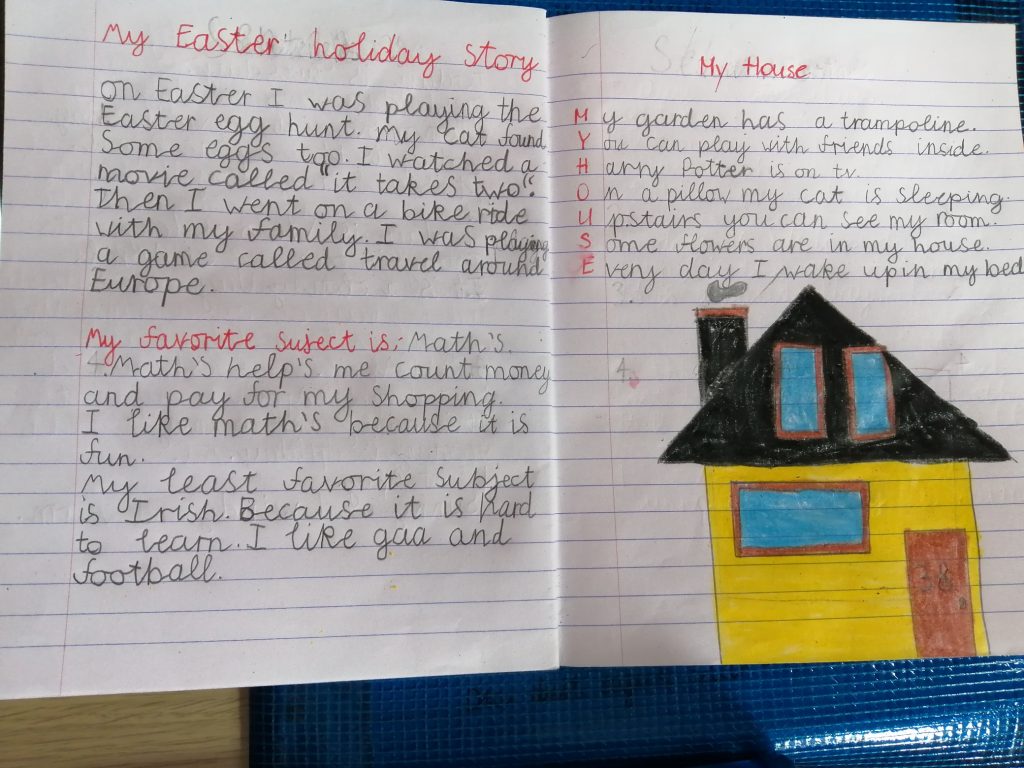 My Easter holiday Story
on Easter I was playing the
Easter egg hunt. My cat found
Some eggs too. I watched a
movie called "it takes two".
Then I went on a bike ride
with my family. I was playing
a game called travel around
Europe.
My favorite suject is: Math's.
Math's help's me count money
and pay for my Shopping.
I like math's because it is
fun.
My least favorite Subject
is Irish. Because it is hard
to learn. I like gaa and
football.
My House
My garden has a trampoline.
You can play with friends inside.
Harry Potter is on tv.
On a pillow my cat is sleeping.
Upstairs you can see my room.
Some flowers are in my house.
Every day I wake up in my bed